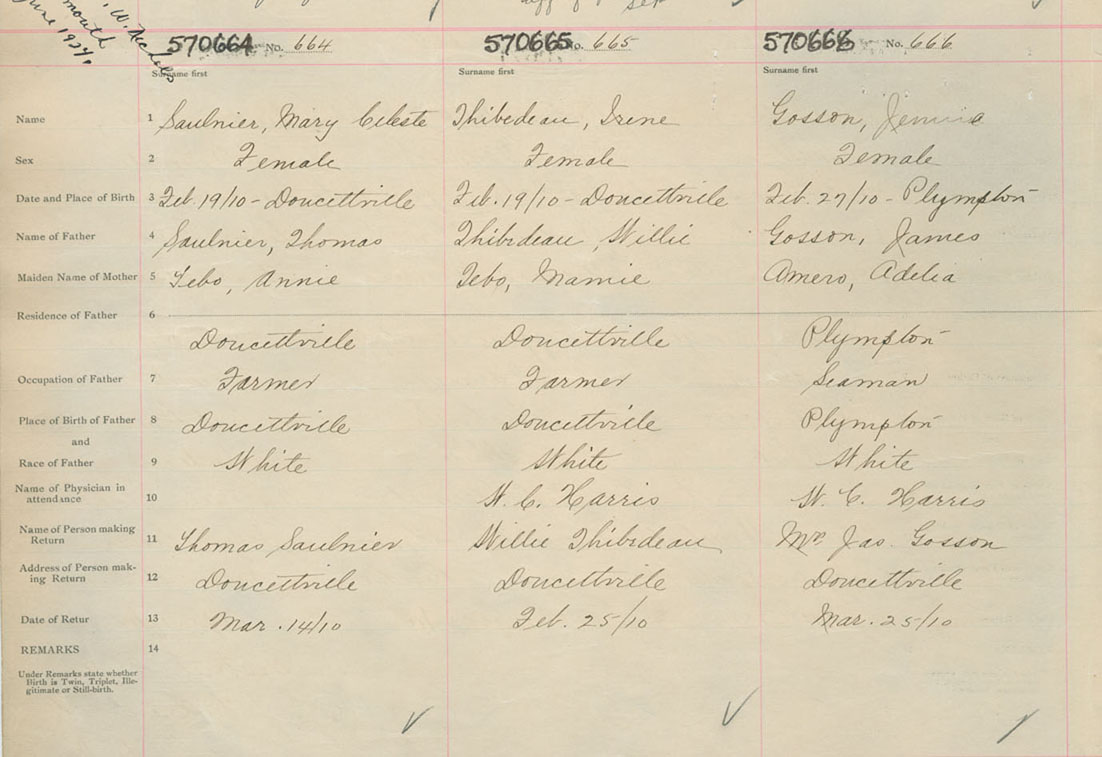 W. Nicholls
mouth
June 1924.
Sep
570664 No. 664 570665 No. 665 570666 No. 666
Surname first Surname first Surname first
Name 1 Saulnier, Mary Celeste Thibedeau, Irene Gosson,
Sex 2 Female Female Female
Date and Place of Birth 3 Feb. 19/10 - Doucettville Feb. 19/10 - Doucettville Feb. 27/10 - Plympton
Name of Father 4 Saulnier, Thomas Thibedeau Willie Gosson, James
Maiden Name of Mother 5 Tebo, Annie Tebo, Mamie Amero, Adelia
Residence of Father 6
Doucettville Doucettville Plympton
Occupation of Father 7 Farmer Farmer Seaman
Place of Birth of Father 8 Doucettville Doucettville Plympton
and
Race of Father 9 White White White
Name of Physician in
attendance 10 W. C. Harris W. C. Harris
Name of Person making
Return 11 Thomas Saulnier Willie Thibedeau Mrs Jas. Gosson
Address of Person mak-
ing Return 12 Doucettville Doucettville Doucettville
Date of Retur 13 Mar. 14/10 Feb. 25/10 Mar. 25/10
REMARKS 14
Under Remarks state whether
Birth is Twin, Triplet, Ille-
gitimate or Still-birth.